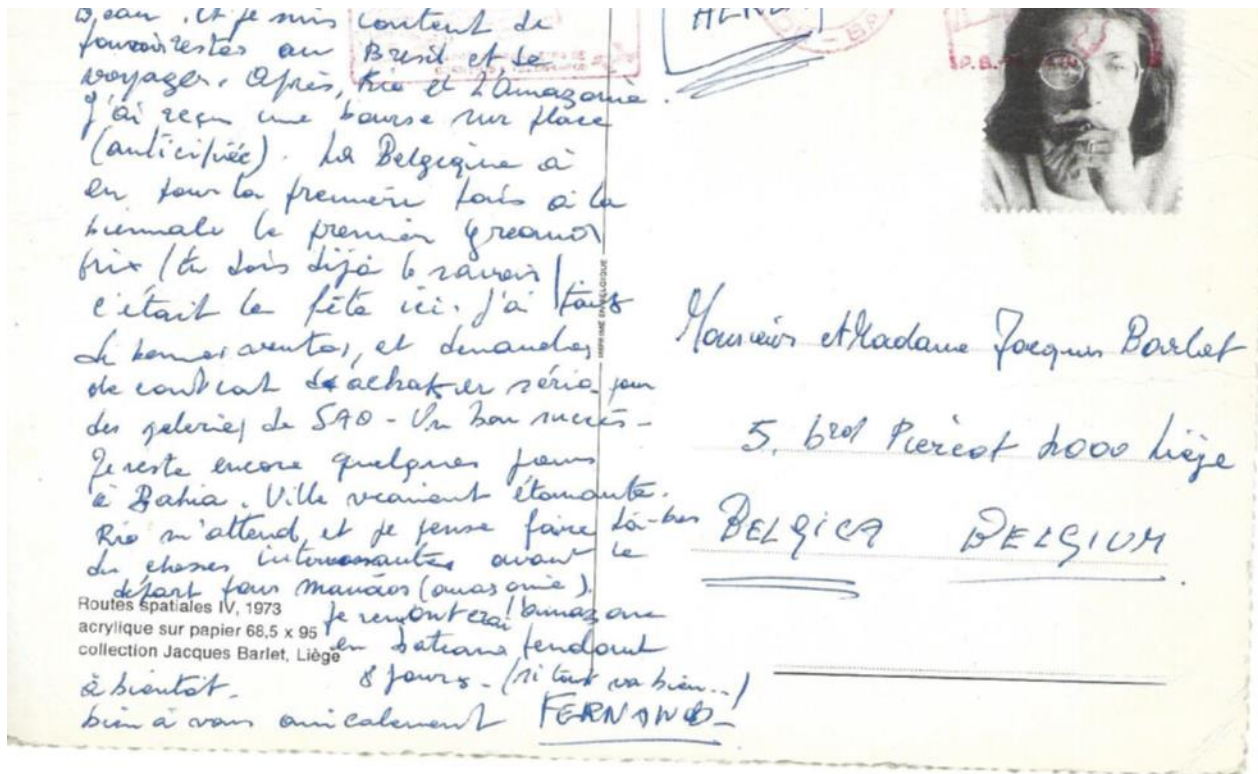 Beau. Et je suis content de
pouvoir rester au Brésil et de
voyager. Après, Rio et L'Amazonie.
J'ai reçu une bourse sur place
(anticipée). La Belgique à
eu pour la première fois à la
biennale le premier grand
prix (tu dois déjà le savoir)
c'était la fête ici. J'ai fait
de bonnes ventes, et demandes
de contrat d'achat en série pour
des galeries de SAO - Un bon succès -
Je reste encore quelques jours
à Bahia. Ville vraiment étonnante.
Rio m'attend, et je pense faire là-bas
des choses intéressantes avant le
départ pour Manaos (amazonie).
je remonterai l'amazone
en bateau pendant
8 jours - (si tout va bien...)
à bientôt.
bien à vous amicalement FERNAND -
Routes spatiales IV, 1973
acrylique sur papier 68,5 x 95
collection Jacques Barlet, Liège
IMPRIMÉ EN BELGIQUE
Monsieur et Madame Jacques Barlet
5, bvd Piercot 4000 Liège
BELGICA BELGIUM